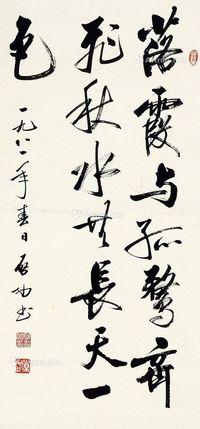 落霞与孤鹜齐
飛秋水共長天一
色
一九八一年春日启功书